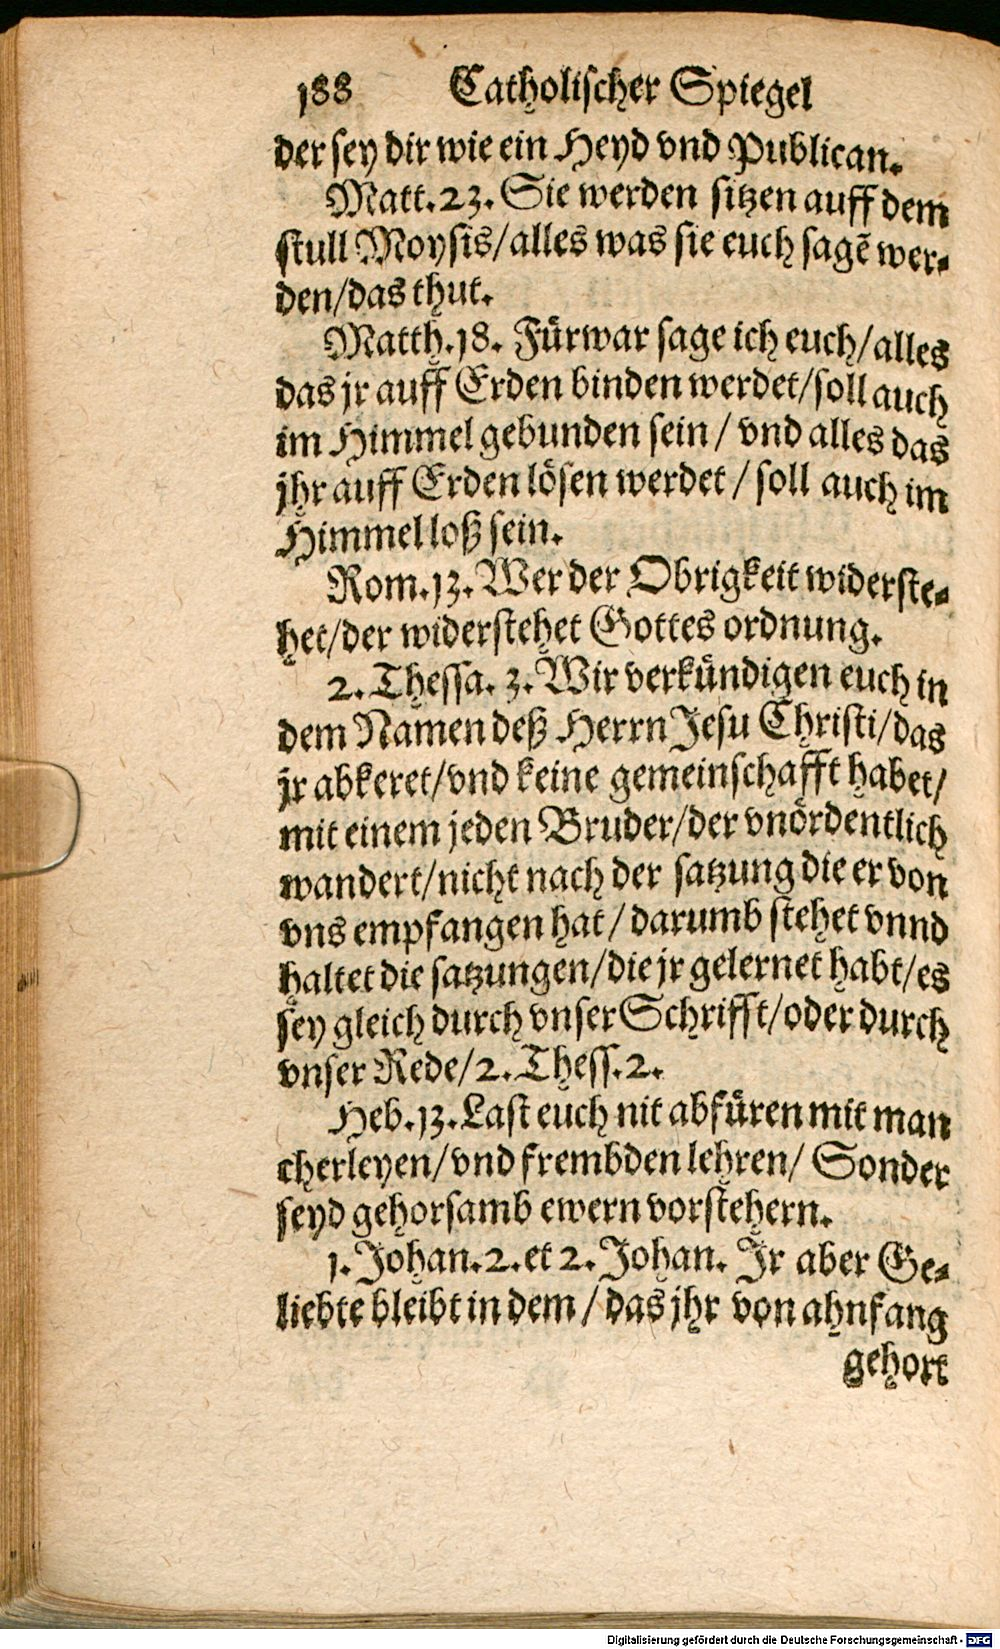 188 Catholischer Spiegel
der sey dir wie ein Heyd vnd Publican.
Matt. 23. Sie werden sitzen auff dem
stull Moysis/alles was sie euch sagē wer-
den/das thut.
Matth. 18. Fürwar sage ich euch/alles
das jr auff Erden binden werdet/soll auch
im Himmel gebunden sein/ vnd alles das
jhr auff Erden lösen werdet/ soll auch im
Himmel loß sein.
Rom. 13. Wer der Obrigkeit widerste-
het/der widerstehet Gottes ordnung.
2. Thessa. 3. Wir verkündigen euch in
dem Namen deß Herrn Jesu Christi/das
jr abkeret/vnd keine gemeinschafft habet/
mit einem jeden Bruder/der vnördentlich
wandert/nicht nach der satzung die er von
vns empfangen hat/ darumb stehet vnnd
haltet die satzungen/die jr gelernet habt/es
sey gleich durch vnser Schrifft/oder durch
vnser Rede/2. Thess. 2.
Heb. 13. Last euch nit abfüren mit man
cherleyen/vnd frembden lehren/ Sonder
seyd gehorsamb ewern vorstehern.
1. Johan. 2. et 2. Johan. Jr aber Ge-
liebte bleibt in dem/ das jhr von ahnfang
gehort
Digitalisierung gefördert durch die Deutsche Forschungsgemeinschaft - DFG